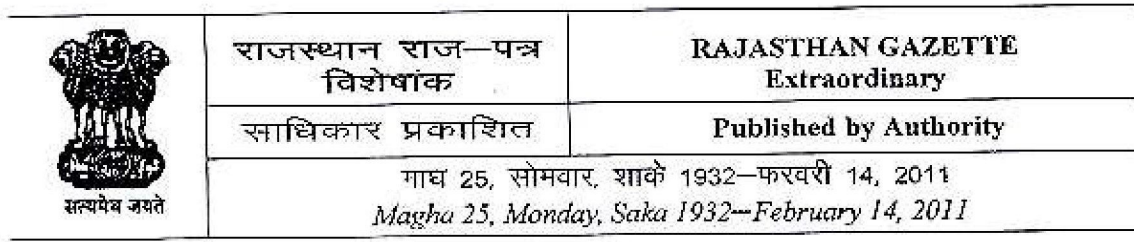 राजस्थान राज—पत्र
विशेषांक
RAJASTHAN GAZETTE
Extraordinary
साधिकार प्रकाशित
Published by Authority
सत्यमेव जयते
माघ 25, सोमवार, शाके 1932—फरवरी 14, 2011
Magha 25, Monday, Saka 1932—February 14, 2011